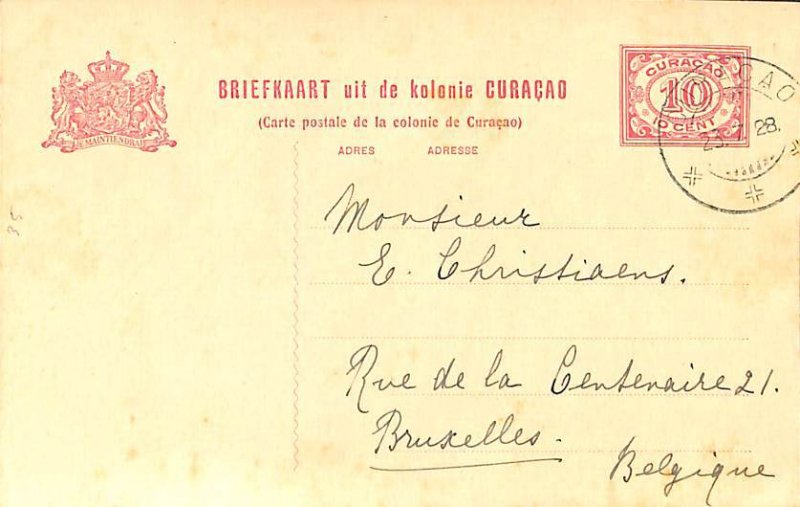 BRIEFKAART uit de kolonie CURAÇAO
(Carte postale de la colonie de Curaçao)
ADRES ADRESSE
JE MAINTIENDRAI
CURAÇAO
10
10 CENT
23.7.28.
Monsieur
E. Christiaens.
Rue de la Centenaire 21.
Bruxelles.
Belgique
35